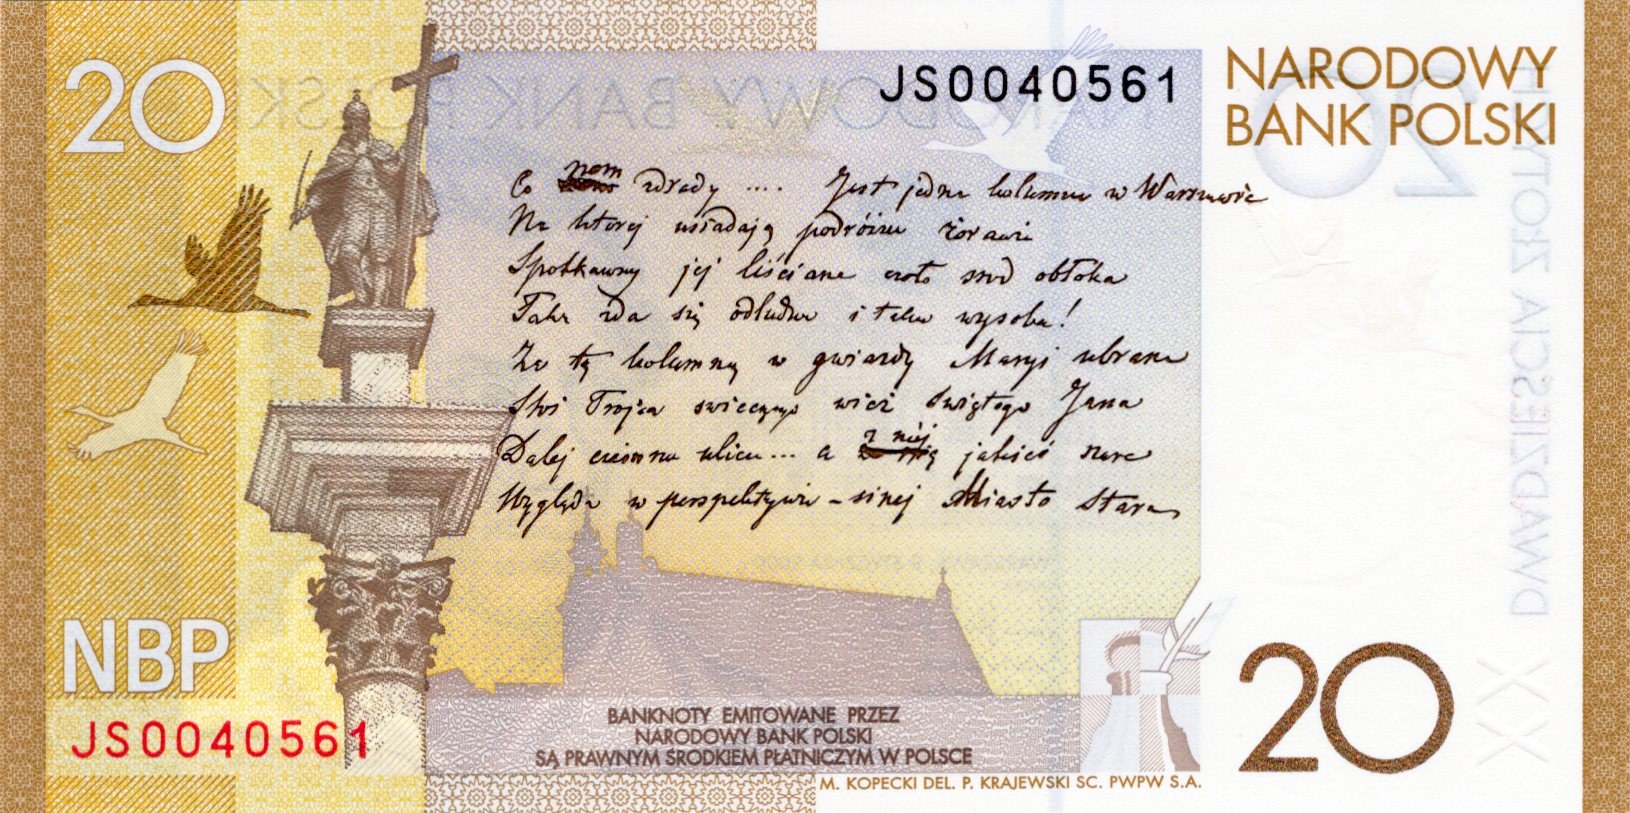 20
JS0040561
NARODOWY
BANK POLSKI
Co nam zdrady .... Jest jedna kolumna w Warszawie
Na ktorej usiadają podróżne żorawie
Spotkawszy jej liściane czoło srod obłoka
Taka zda się odludna i taka wysoka!
Za tą kolumną w gwiazdy Maryi ubrana
Stoi Trojca swiecących wież Swiętego Jana
Dalej ciemna ulica... a z niej jakieś szare
Wygląda w perspektywie – sinej Miasto stare
NBP
JS0040561
BANKNOTY EMITOWANE PRZEZ
NARODOWY BANK POLSKI
SĄ PRAWNYM ŚRODKIEM PŁATNICZYM W POLSCE
20
M. KOPECKI DEL. P. KRAJEWSKI SC. PWPW S.A.